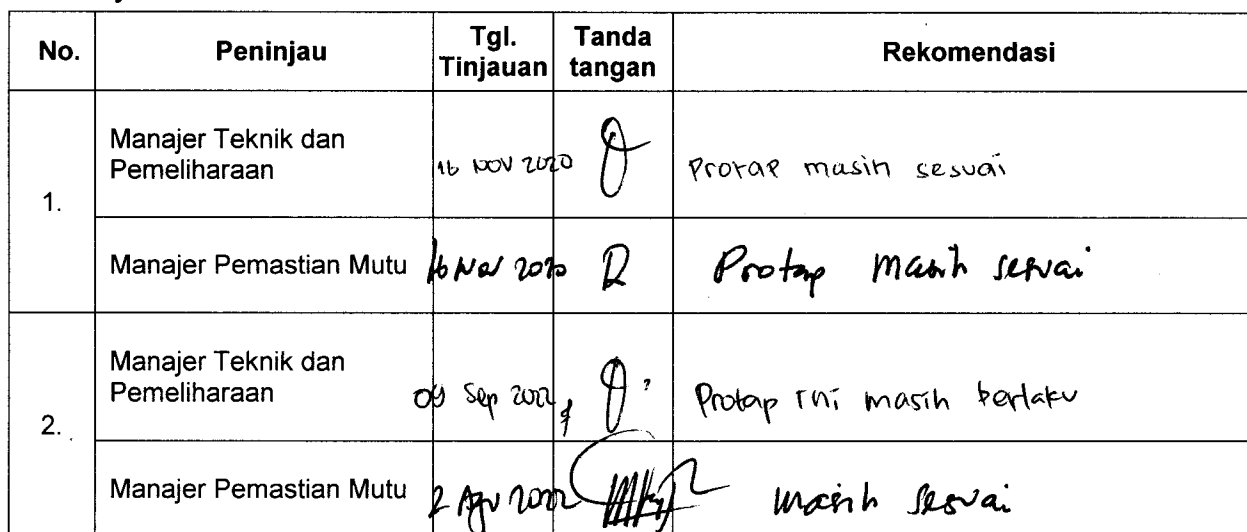 No. Peninjau Tgl. Tinjauan Tanda tangan Rekomendasi
1.
Manajer Teknik dan Pemeliharaan 16 NOV 2020 Protap masih sesuai
Manajer Pemastian Mutu 16 Nov 2020 Protap masih sesuai
2.
Manajer Teknik dan Pemeliharaan 09 Sep 2022 Protap ini masih berlaku
Manajer Pemastian Mutu 2 Agu 2022 masih sesuai